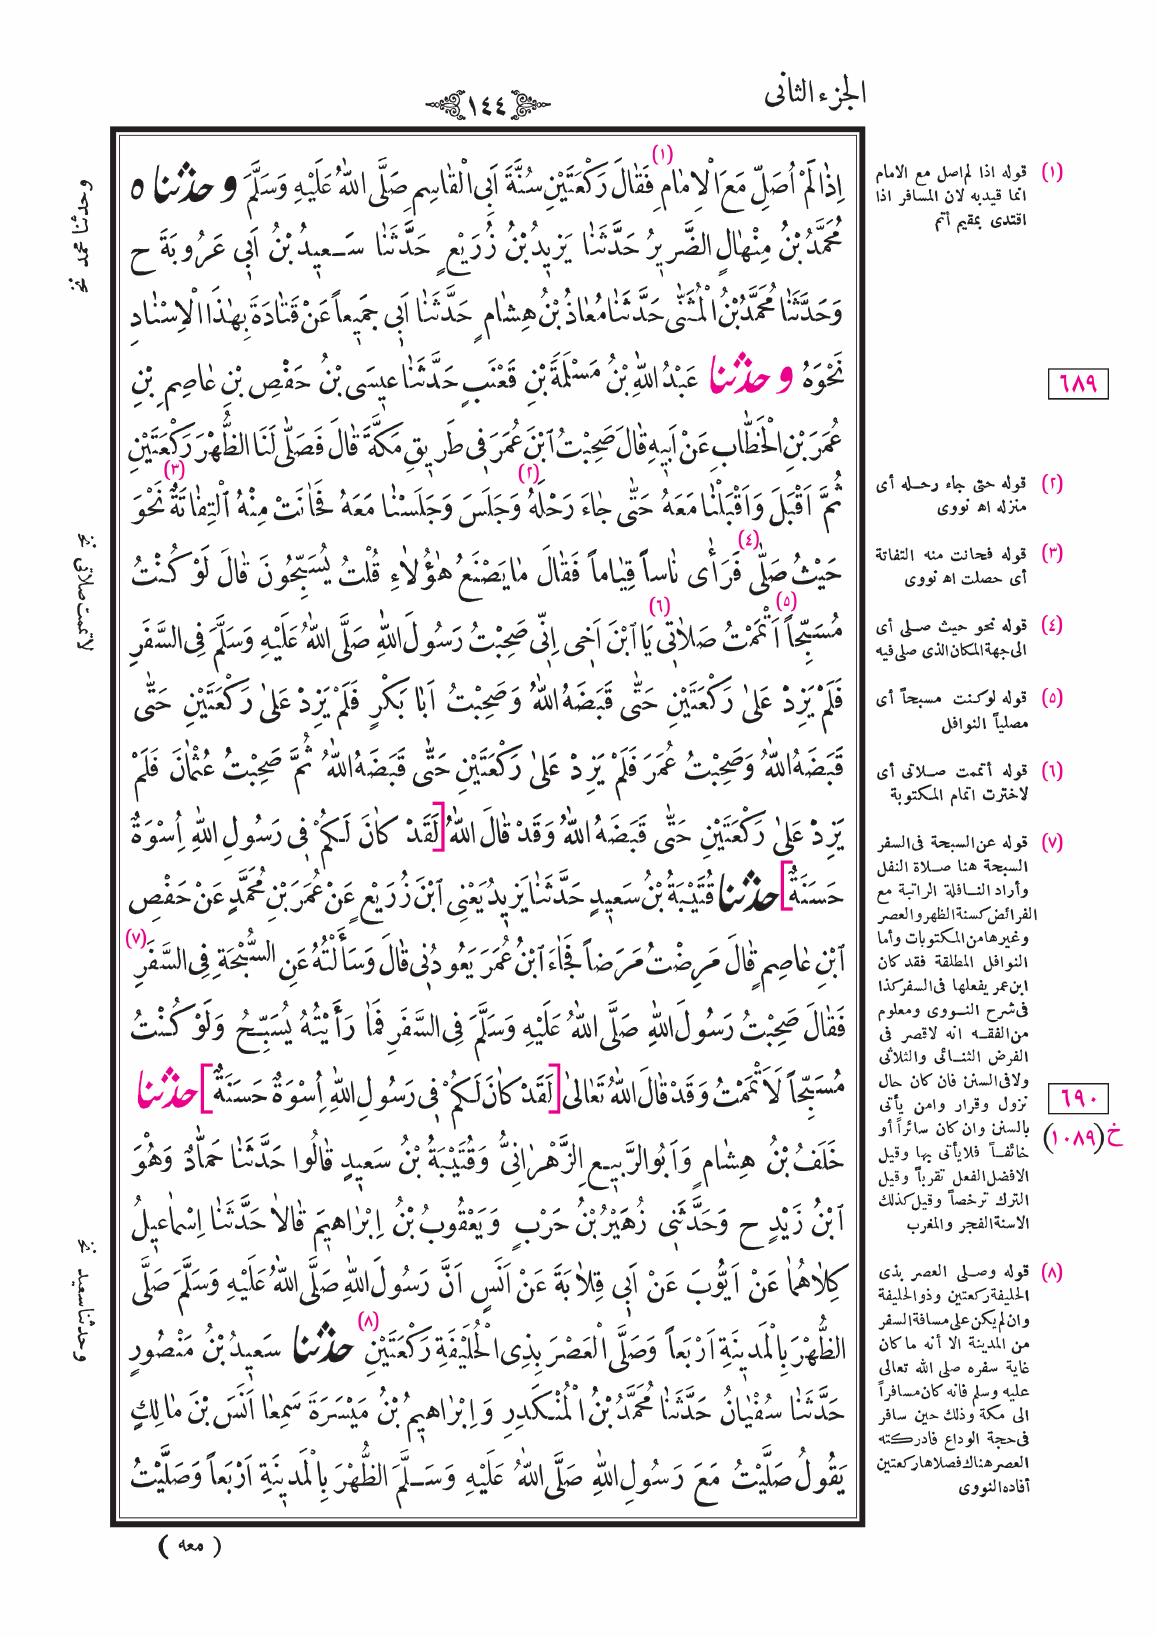 الجزء الثانى
١٤٤
اِذٰا لَمْ اُصَلِّ مَعَ الْاِمٰامِ (١) فَقٰالَ رَكْعَتَيْنِ سُنَّةَ اَبِى الْقٰاسِمِ صَلَّى اللّٰهُ عَلَيْهِ وَسَلَّمَ و حدثنا ٥
مُحَمَّدُ بْنُ مِنْهٰالٍ الضَّرِيرُ حَدَّثَنٰا يَزِيدُ بْنُ زُرَيْعٍ حَدَّثَنٰا سَعِيدُ بْنُ اَبِى عَرُوبَةَ ح
وَحَدَّثَنٰا مُحَمَّدُ بْنُ الْمُثَنّٰى حَدَّثَنٰا مُعٰاذُ بْنُ هِشٰامٍ حَدَّثَنٰا اَبِى جَمِيعاً عَنْ قَتٰادَةَ بِهٰذَا الْاِسْنٰادِ
نَحْوَهُ و حدثنا عَبْدُ اللّٰهِ بْنُ مَسْلَمَةَ بْنِ قَعْنَبٍ حَدَّثَنٰا عيسَى بْنُ حَفْصِ بْنِ عٰاصِمِ بْنِ
عُمَرَ بْنِ الْخَطّٰابِ عَنْ اَبيهِ قٰالَ صَحِبْتُ ابْنَ عُمَرَ فِى طَريقِ مَكَّةَ قٰالَ فَصَلّٰى لَنَا الظُّهْرَ رَكْعَتَيْنِ
ثُمَّ اَقْبَلَ وَاَقْبَلْنٰا مَعَهُ حَتّٰى جٰاءَ رَحْلَهُ (٢) وَجَلَسَ وَجَلَسْنٰا مَعَهُ فَحٰانَتْ مِنْهُ الْتِفٰاتَةٌ (٣) نَحْوَ
حَيْثُ صَلّٰى (٤) فَرَأٰى نٰاساً قِيٰاماً فَقٰالَ مٰا يَصْنَعُ هٰؤُلٰاءِ قُلْتُ يُسَبِّحُونَ قٰالَ لَوْ كُنْتُ
مُسَبِّحاً (٥) اَتْمَمْتُ صَلٰاتِى (٦) يَا ابْنَ اَخِى اِنِّى صَحِبْتُ رَسُولَ اللّٰهِ صَلَّى اللّٰهُ عَلَيْهِ وَسَلَّمَ فِى السَّفَرِ
فَلَمْ يَزِدْ عَلىٰ رَكْعَتَيْنِ حَتّٰى قَبَضَهُ اللّٰهُ وَصَحِبْتُ اَبٰا بَكْرٍ فَلَمْ يَزِدْ عَلىٰ رَكْعَتَيْنِ حَتّٰى
قَبَضَهُ اللّٰهُ وَصَحِبْتُ عُمَرَ فَلَمْ يَزِدْ عَلىٰ رَكْعَتَيْنِ حَتّٰى قَبَضَهُ اللّٰهُ ثُمَّ صَحِبْتُ عُثْمٰانَ فَلَمْ
يَزِدْ عَلىٰ رَكْعَتَيْنِ حَتّٰى قَبَضَهُ اللّٰهُ وَقَدْ قٰالَ اللّٰهُ [لَقَدْ كٰانَ لَكُمْ فِى رَسُولِ اللّٰهِ اِسْوَةٌ
حَسَنَةٌ] حدثنا قُتَيْبَةُ بْنُ سَعِيدٍ حَدَّثَنٰا يَزِيدُ يَعْنِى ابْنَ زُرَيْعٍ عَنْ عُمَرَ بْنِ مُحَمَّدٍ عَنْ حَفْصِ
ابْنِ عٰاصِمٍ قٰالَ مَرِضْتُ مَرَضاً فَجٰاءَ ابْنُ عُمَرَ يَعُودُنِى قٰالَ وَسَأَلْتُهُ عَنِ السُّبْحَةِ فِى السَّفَرِ (٧)
فَقٰالَ صَحِبْتُ رَسُولَ اللّٰهِ صَلَّى اللّٰهُ عَلَيْهِ وَسَلَّمَ فِى السَّفَرِ فَمٰا رَأَيْتُهُ يُسَبِّحُ وَلَوْ كُنْتُ
مُسَبِّحاً لَاَتْمَمْتُ وَقَدْ قٰالَ اللّٰهُ تَعٰالىٰ [لَقَدْ كٰانَ لَكُمْ فِى رَسُولِ اللّٰهِ اِسْوَةٌ حَسَنَةٌ] حدثنا
خَلَفُ بْنُ هِشٰامٍ وَاَبُو الرَّبِيعِ الزَّهْرٰانِىُّ وَقُتَيْبَةُ بْنُ سَعِيدٍ قٰالُوا حَدَّثَنٰا حَمّٰادٌ وَهُوَ
ابْنُ زَيْدٍ ح وَحَدَّثَنِى زُهَيْرُ بْنُ حَرْبٍ وَيَعْقُوبُ بْنُ اِبْرٰاهِيمَ قٰالاٰ حَدَّثَنٰا اِسْمٰاعِيلُ
كِلاٰهُمٰا عَنْ اَيُّوبَ عَنْ اَبِى قِلاٰبَةَ عَنْ اَنَسٍ اَنَّ رَسُولَ اللّٰهِ صَلَّى اللّٰهُ عَلَيْهِ وَسَلَّمَ صَلَّى
الظُّهْرَ بِالْمَدِينَةِ اَرْبَعاً وَصَلَّى الْعَصْرَ بِذِى الْحُلَيْفَةِ رَكْعَتَيْنِ (٨) حدثنا سَعِيدُ بْنُ مَنْصُورٍ
حَدَّثَنٰا سُفْيٰانُ حَدَّثَنٰا مُحَمَّدُ بْنُ الْمُنْكَدِرِ وَاِبْرٰاهِيمُ بْنُ مَيْسَرَةَ سَمِعٰا اَنَسَ بْنَ مٰالِكٍ
يَقُولُ صَلَّيْتُ مَعَ رَسُولِ اللّٰهِ صَلَّى اللّٰهُ عَلَيْهِ وَسَلَّمَ الظُّهْرَ بِالْمَدِينَةِ اَرْبَعاً وَصَلَّيْتُ
( معه )
(١) قوله اذا لم اصل مع الامام
انما قيد به لان المسافر اذا
اقتدى بمقيم أتم
٦٨٩
(٢) قوله حتى جاء رحله أى
منزله اه نووى
(٣) قوله فحانت منه التفاتة
أى حصلت اه نووى
(٤) قوله نحو حيث صلى أى
الى جهة المكان الذى صلى فيه
(٥) قوله لوكنت مسبحاً أى
مصلياً النوافل
(٦) قوله أتممت صلاتى أى
لاخترت اتمام المكتوبة
(٧) قوله عن السبحة فى السفر
السبحة هنا صلاة النفل
وأراد النافلة الراتبة مع
الفرائض كسنة الظهر والعصر
وغيرها من المكتوبات وأما
النوافل المطلقة فقد كان
ابن عمر يفعلها فى السفر كذا
فى شرح النووى ومعلوم
من الفقه انه لاقصر فى
الفرض الثنائى والثلاثى
ولا فى السنن فان كان حال
نزول وقرار وامن يأتى
بالسنن وان كان سائراً أو
خائفاً فلا يأتى بها وقيل
الافضل الفعل تقرباً وقيل
الترك ترخصاً وقيل كذلك
الاسنة الفجر والمغرب
٦٩٠
خ (١٠٨٩)
(٨) قوله وصلى العصر بذى
الحليفة ركعتين وذو الحليفة
وان لم يكن على مسافة السفر
من المدينة الا أنه ما كان
غاية سفره صلى الله تعالى
عليه وسلم فانه كان مسافراً
الى مكة وذلك حين سافر
فى حجة الوداع فادركته
العصر هناك فصلاها ركعتين
أفاده النووى
وحدثنا محمد نخ
لاتممت صلاتى نخ
وحدثنا سعيد نخ